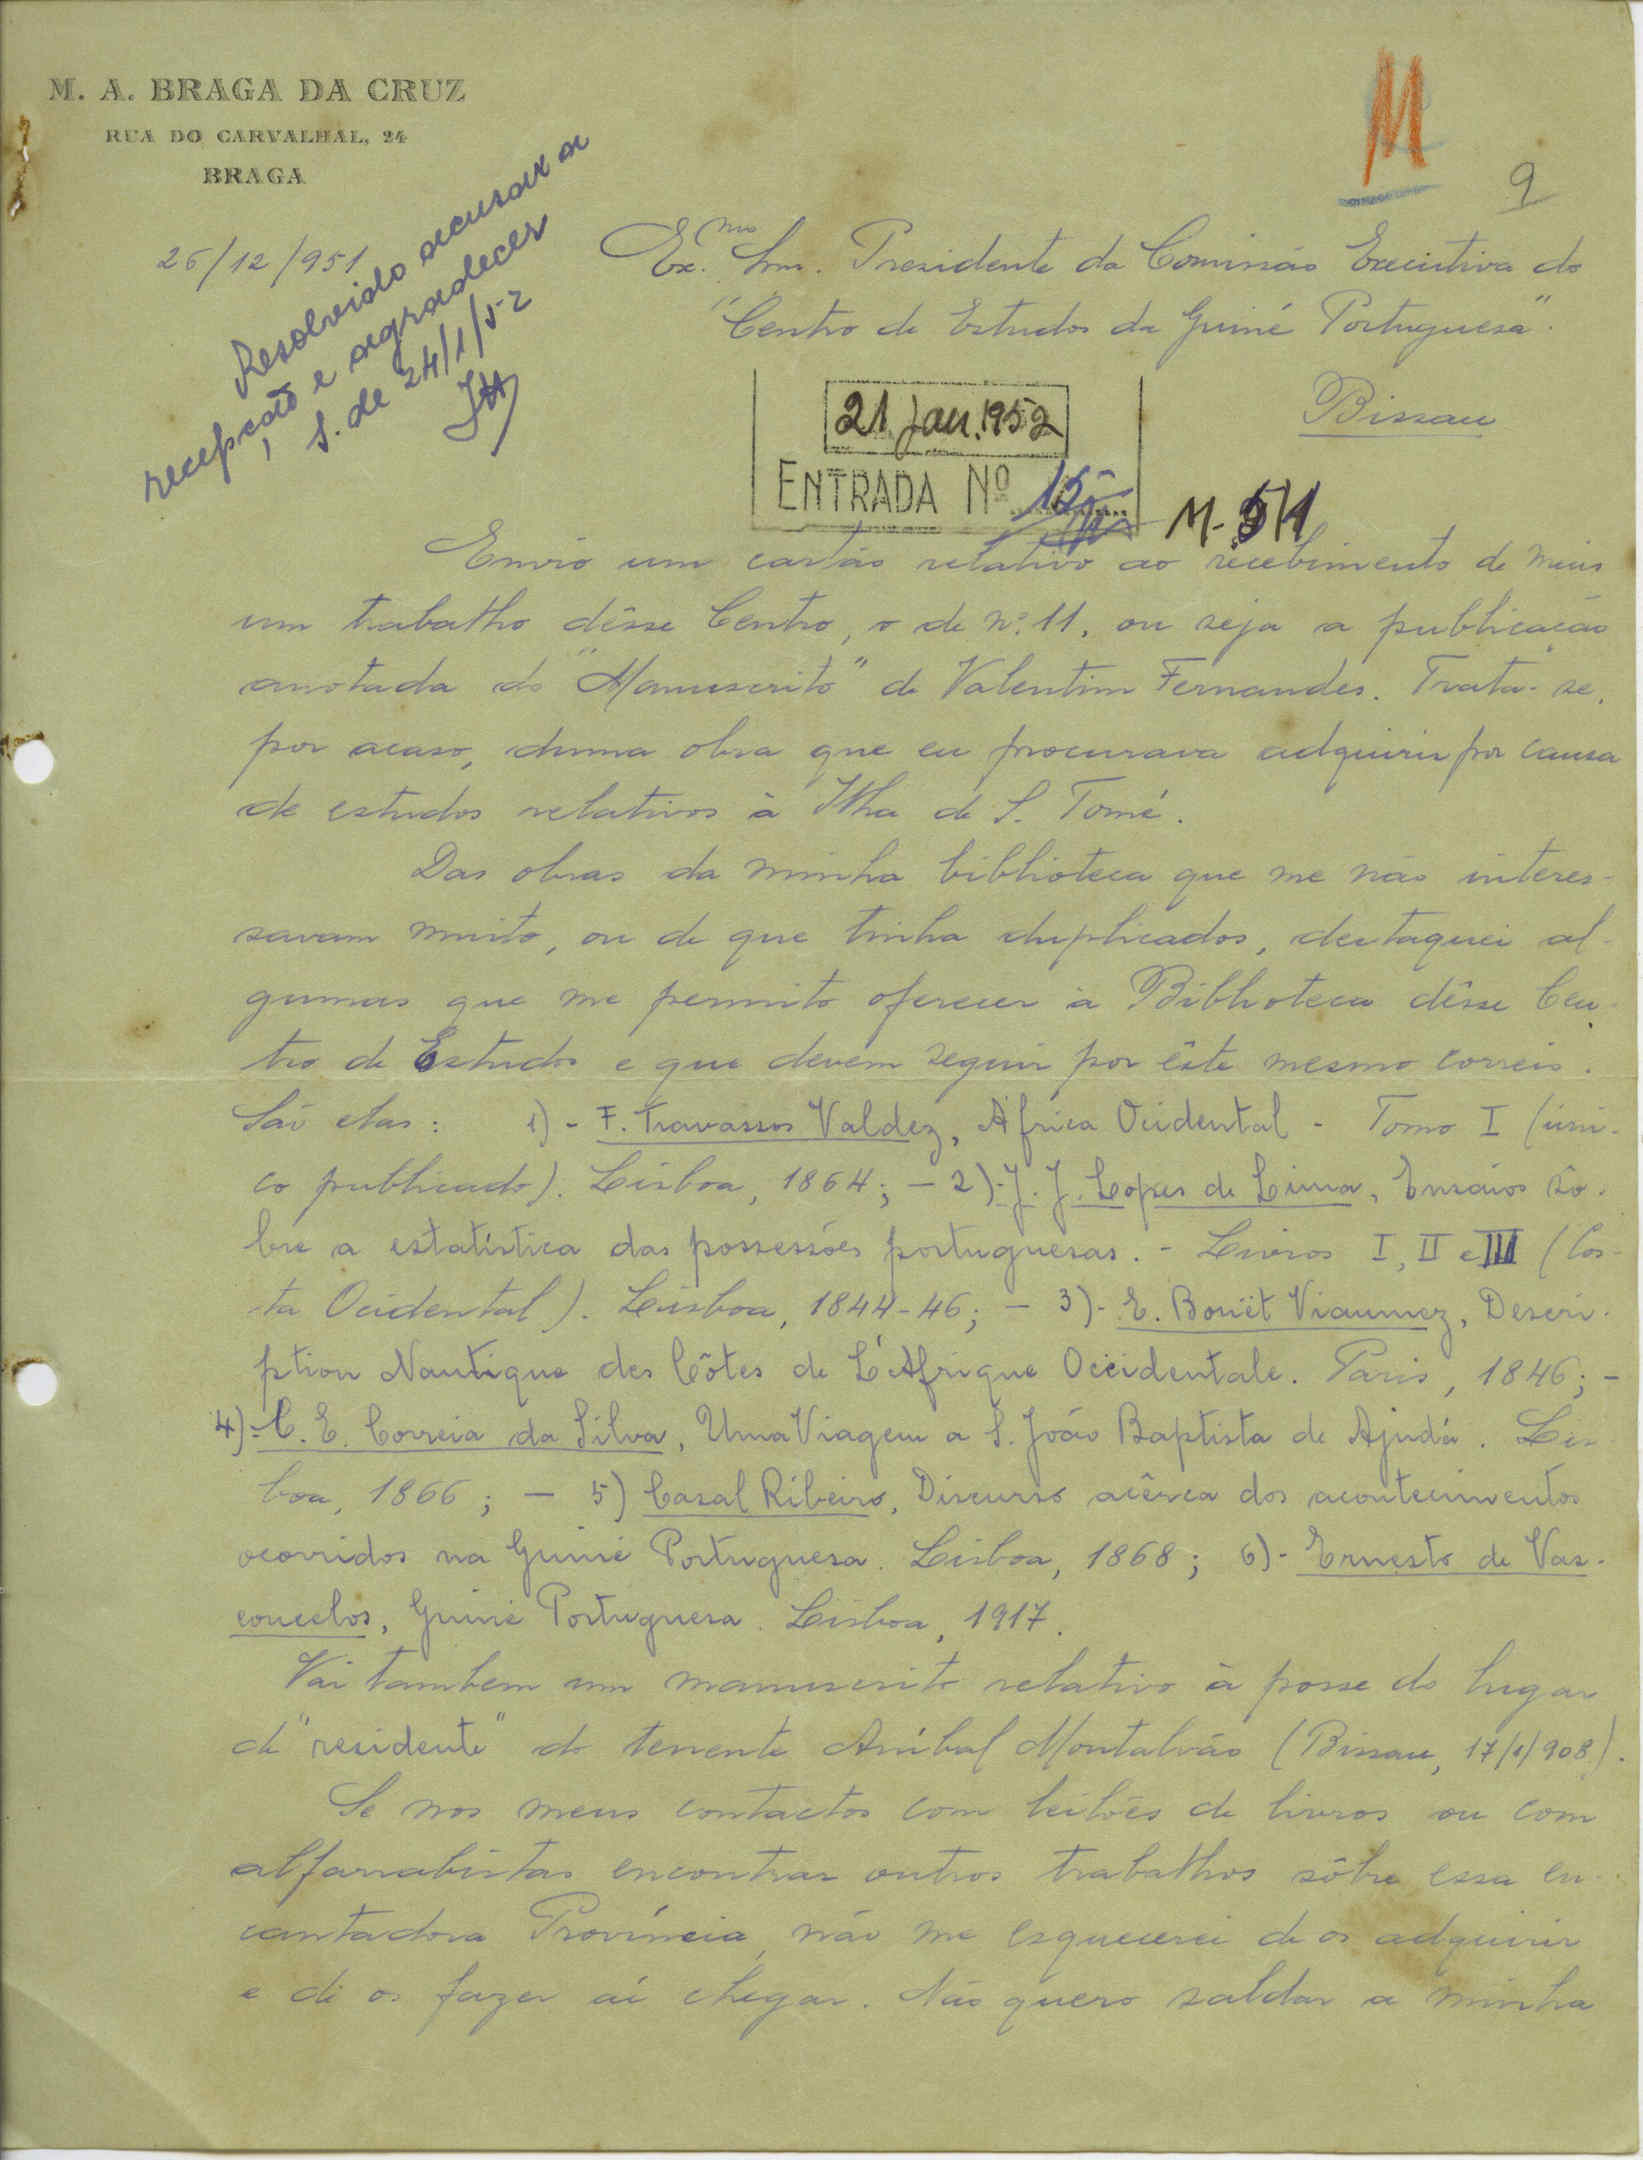 M. A. BRAGA DA CRUZ
RUA DO CARVALHAL, 24
BRAGA
M
9
26/12/951
Resolvido acusar a
recepção e agradecer
S. de 24/1/52
Ex.mo Snr. Presidente da Comissão Executiva do
"Centro de Estudos da Guiné Portuguesa".
Bissau
21 Jan. 1952
ENTRADA Nº 15
M-5/1
Envio um cartão relativo ao recebimento de mais
um trabalho dêsse Centro, o de nº. 11, ou seja a publicação
anotada do "Manuscrito" de Valentim Fernandes. Trata-se,
por acaso, duma obra que eu procurava adquirir por causa
de estudos relativos à Ilha de S. Tomé.
Das obras da minha biblioteca que me não interes-
savam muito, ou de que tinha duplicados, destaquei al-
gumas que me permito oferecer à Biblioteca dêsse Cen-
tro de Estudos e que devem seguir por êste mesmo correio.
São elas: 1) - F. Travassos Valdez, África Ocidental - Tomo I (úni-
co publicado). Lisboa, 1864; - 2) - J. J. Lopes de Lima, Ensáios sô-
bre a estatística das possessões portuguesas. - Livros I, II e III (Cos-
ta Ocidental). Lisboa, 1844-46; - 3) - E. Bouët Viaumez, Descri-
ption Nautique des Côtes de L'Afrique Occidentale. Paris, 1846; -
4) - C. E. Correia da Silva, Uma Viagem a S. João Baptista de Ajudá. Lis-
boa, 1866; - 5) Casal Ribeiro, Discurso acêrca dos acontecimentos
ocorridos na Guiné Portuguesa. Lisboa, 1868; 6) - Ernesto de Vas-
concelos, Guiné Portuguesa. Lisboa, 1917.
Vai tambem um manuscrito relativo à posse do lugar
de "residente" do tenente Aníbal Montalvão (Bissau, 17/1/908).
Se nos meus contactos com leilões de livros ou com
alfarrabistas encontrar outros trabalhos sôbre essa en-
cantadora Província, não me esquecerei de os adquirir
e de os fazer aí chegar. Não quero saldar a minha